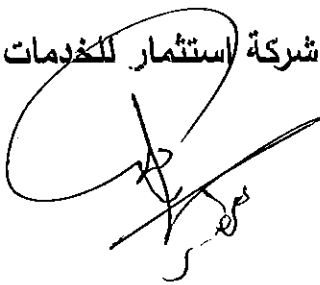 شركة استثمار للخدمات